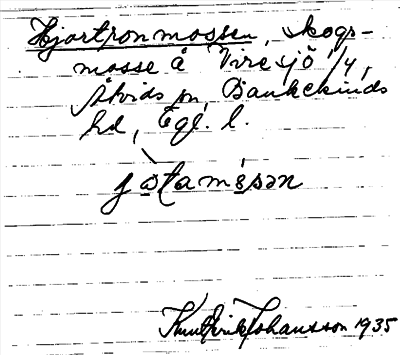 Hjortronmossen, skogs-
mosse å Viresjö 1/4,
Åtvids sn, Bankekinds
hd, Ögl. l.
jɷ̀tamɷ́sən
Knut Erik Johansson 1935